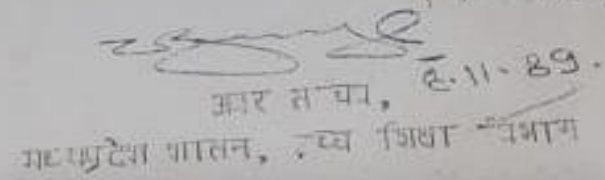 8.11-89.
अवर सचिव,
मध्यप्रदेश शासन, उच्च शिक्षा विभाग